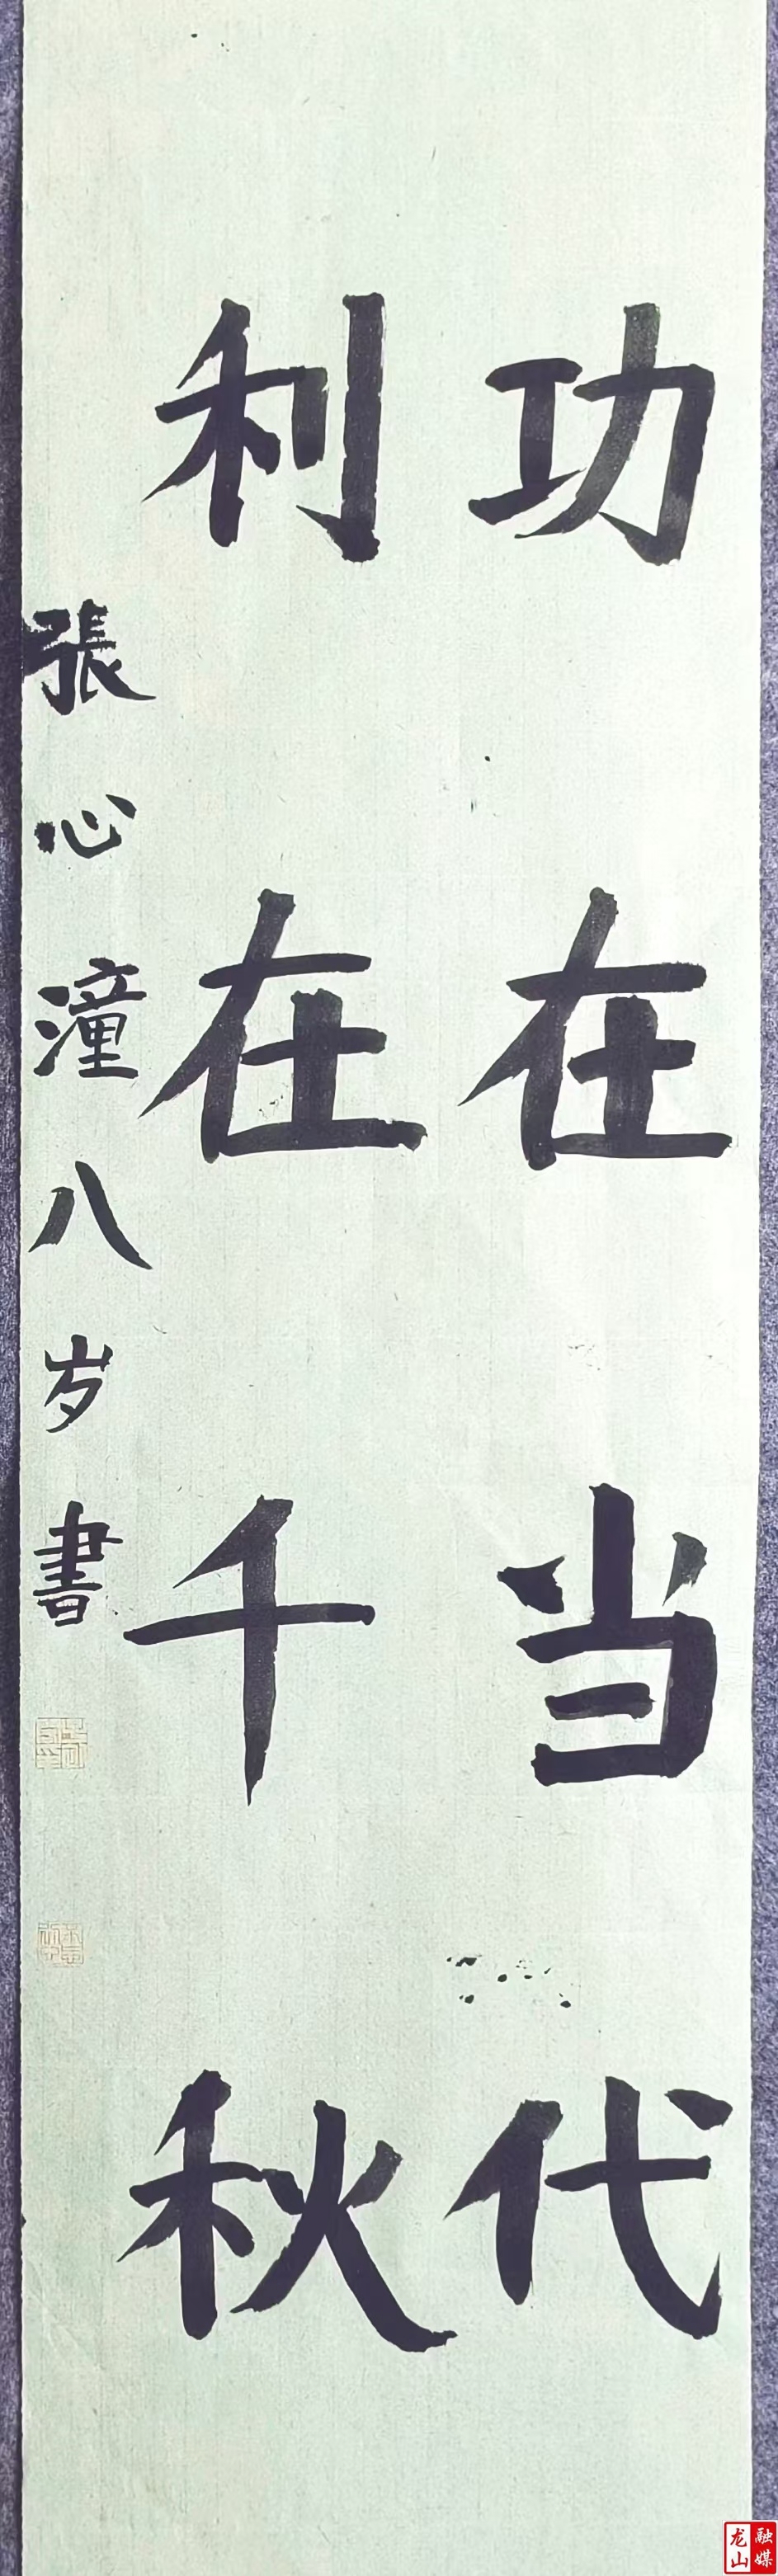 功在当代
利在千秋
張心潼八岁書
龙山融媒